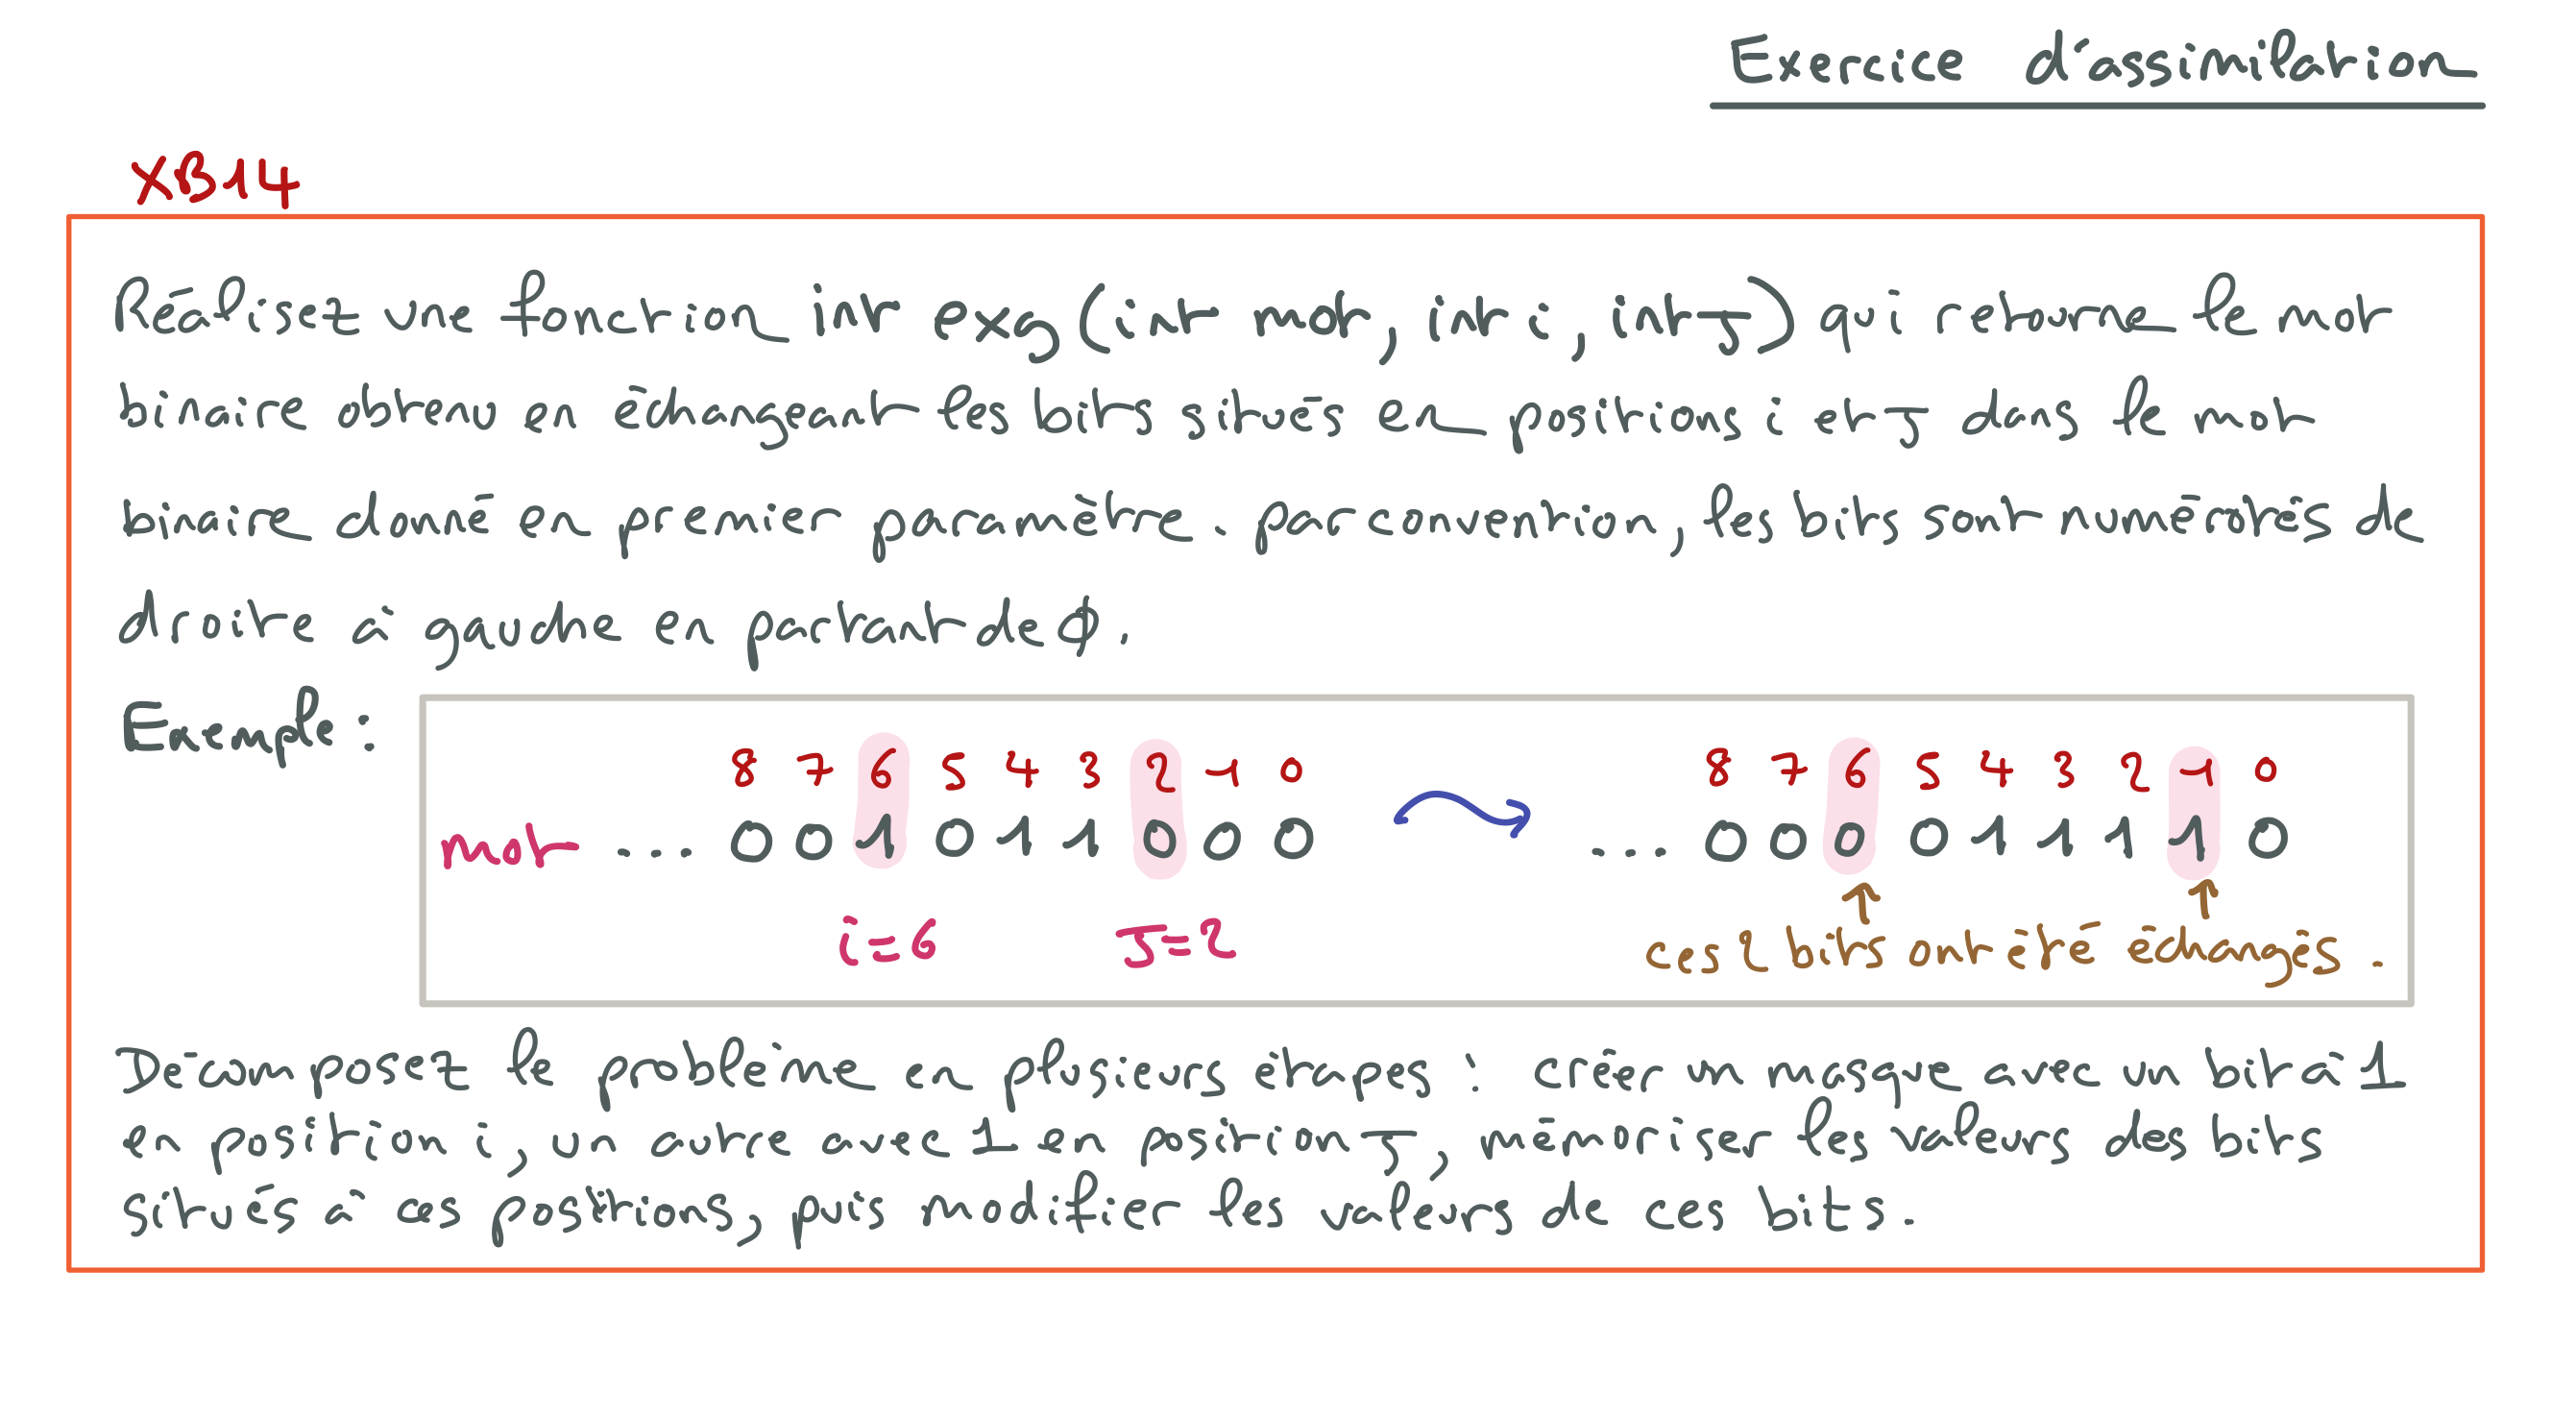 Exercice d'assimilation
XB14
Réalisez une fonction int exg (int mot, int i, int J) qui retourne le mot
binaire obtenu en échangeant les bits situés en positions i et J dans le mot
binaire donné en premier paramètre. par convention, les bits sont numérotés de
droite à gauche en partant de 0.
Exemple :
8 7 6 5 4 3 2 1 0
mot ... 0 0 1 0 1 1 0 0 0
i=6 J=2
8 7 6 5 4 3 2 1 0
... 0 0 0 0 1 1 1 1 0
ces 2 bits ont été échangés.
Décomposez le problème en plusieurs étapes : créer un masque avec un bit à 1
en position i, un autre avec 1 en position J, mémoriser les valeurs des bits
situés à ces positions, puis modifier les valeurs de ces bits.